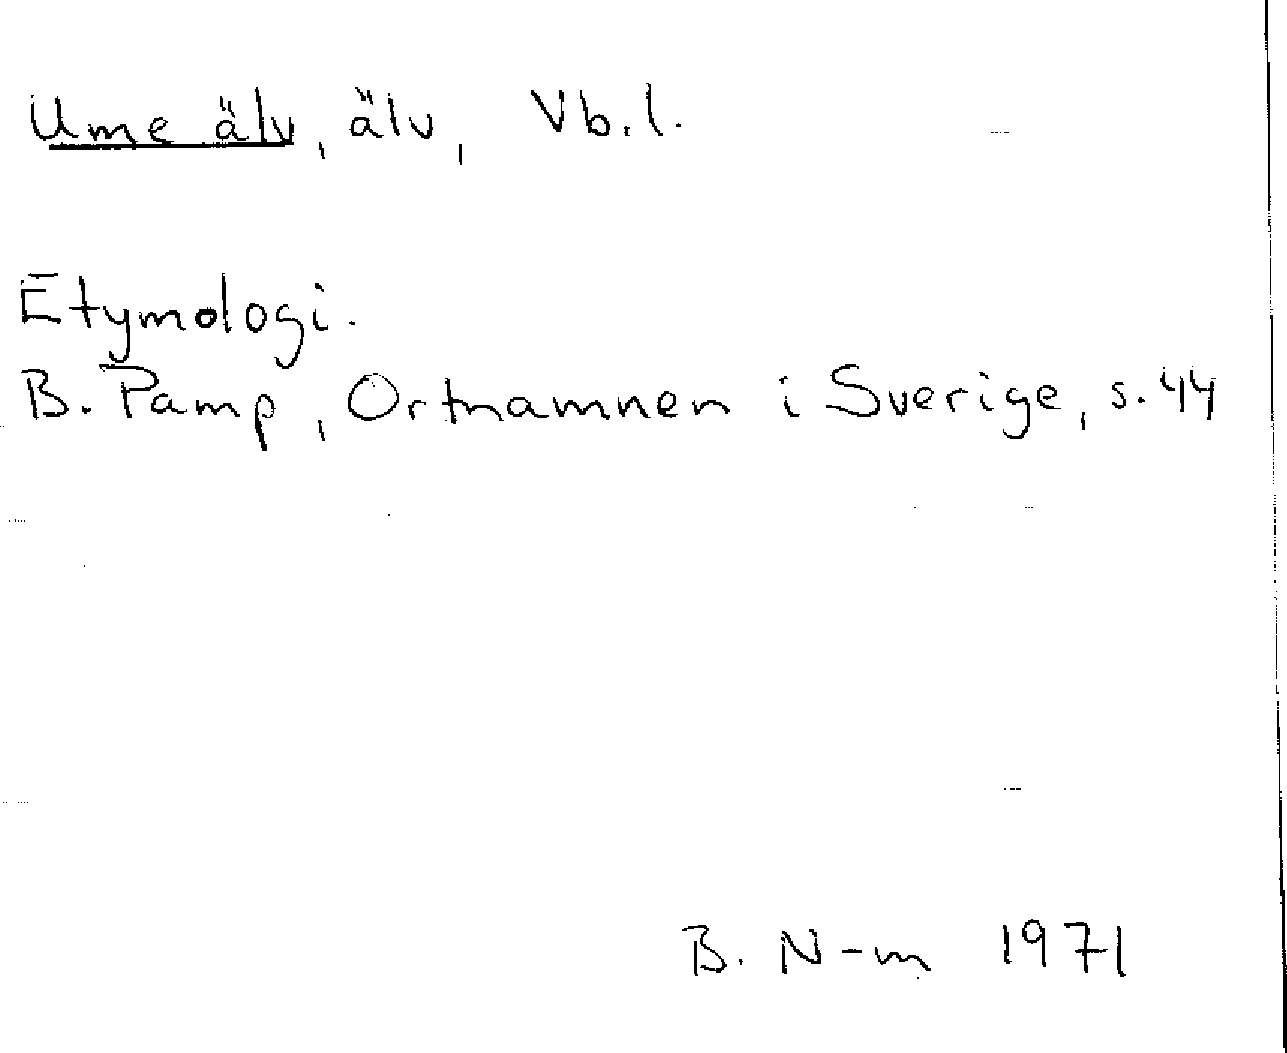 Ume älv, älv, Vb.l.
Etymologi.
B. Pamp, Ortnamnen i Sverige, s. 44
B. N-m 1971